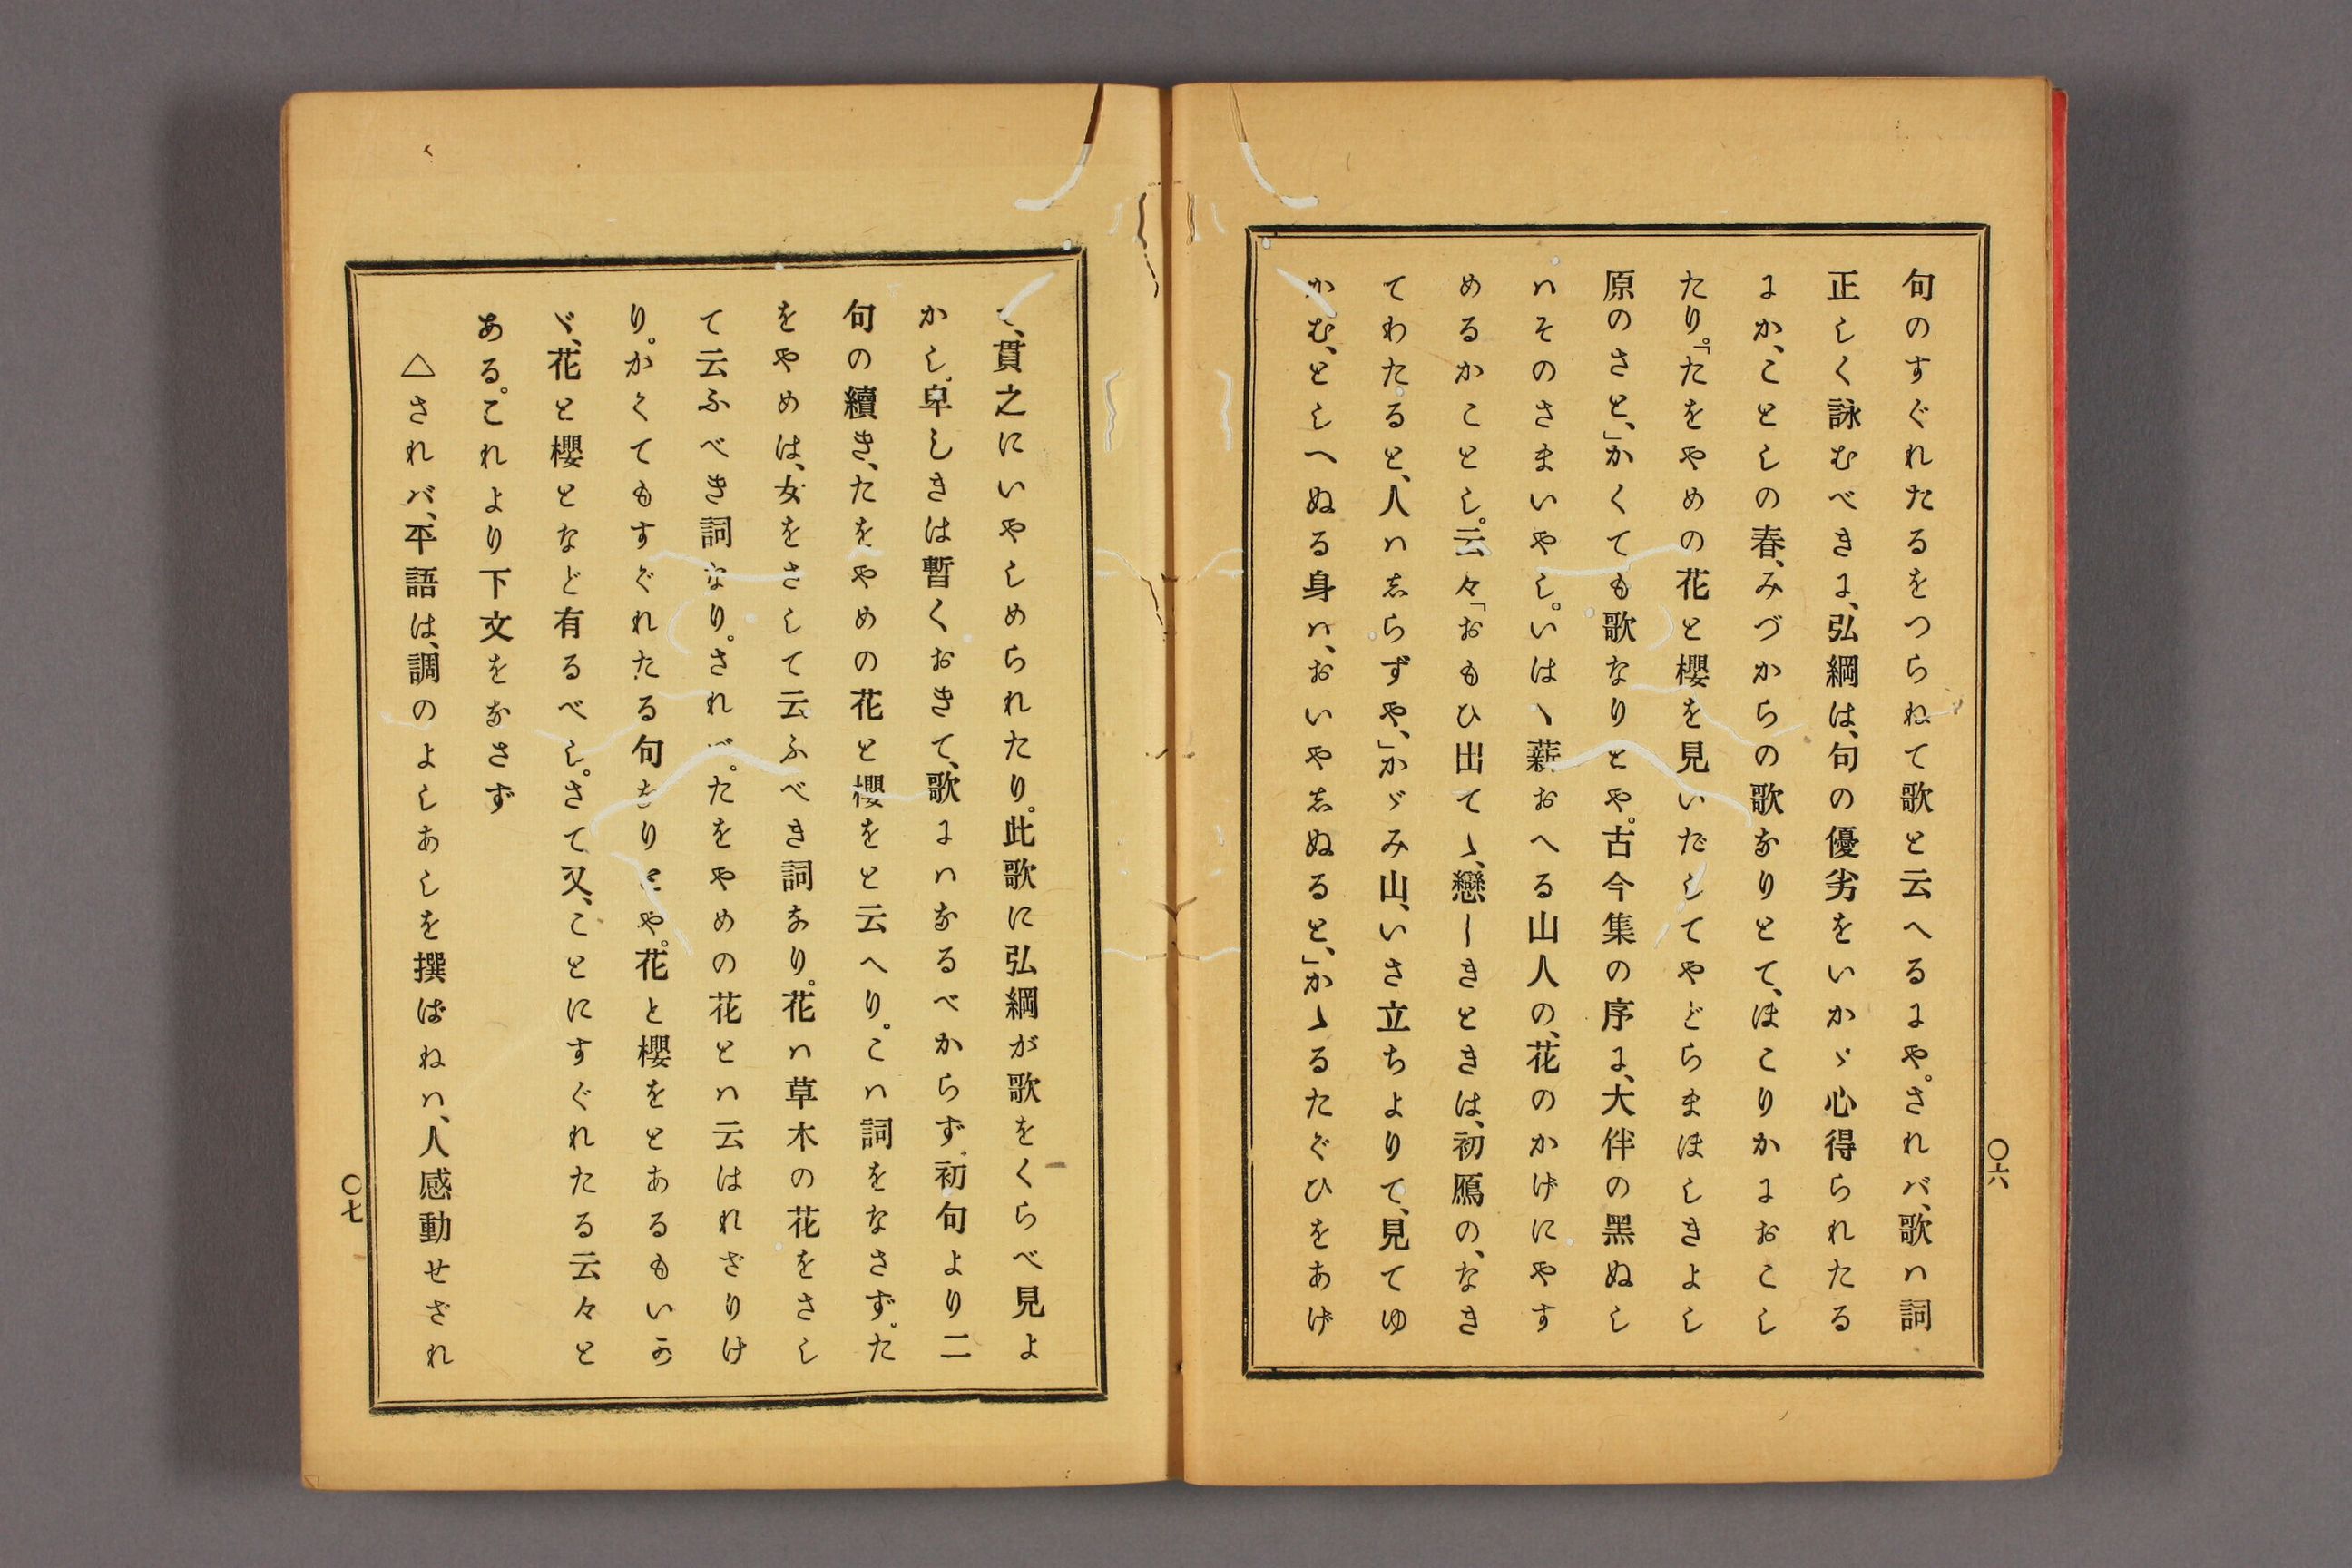 句のすぐれたるをつらねて歌と云へるにや。されバ、歌ハ詞
正しく詠むべきに、弘綱は、句の優劣をいかゞ心得られたる
にか、ことしの春、みづからの歌なりとて、ほこりかにおこし
たり。「たをやめの花と櫻を見いだしてやどらまほしきよし
原のさと、」かくても歌なりとや。古今集の序に、大伴の黑ぬし
ハそのさまいやし。いはゝ薪おへる山人の、花のかげにやす
めるかことし。云々「おもひ出てゝ、戀しきときは、初鴈の、なき
てわたると、人ハしらずや、」かゞみ山、いさ立ちよりて、見てゆ
かむ、としへぬる身ハ、おいやしぬると、」かゝるたぐひをあげ
〇六
て、貫之にいやしめられたり。此歌に弘綱が歌をくらべ見よ
かし。卑しきは暫くおきて、歌にハなるべからず、初句より二
句の續き、たをやめの花と櫻をと云へり。こハ詞をなさず。た
をやめは、女をさして云ふべき詞なり。花ハ草木の花をさし
て云ふべき詞なり。されバ。たをやめの花とハ云はれざりけ
り。かくてもすぐれたる句なりとや。花と櫻をとあるもいか
ゞ、花と櫻となど有るべし。さて又、ことにすぐれたる云々と
ある。これより下文をなさず
△されバ、平語は、調のよしあしを撰ばねハ、人感動せざれ
〇七